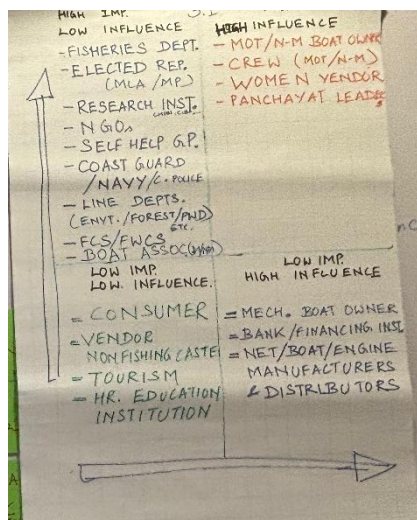 HIGH IMP.
LOW INFLUENCE
- FISHERIES DEPT.
- ELECTED REP.
(MLA / MP)
- RESEARCH INST.
- NGOs
- SELF HELP G.P.
- COAST GUARD
/NAVY/C. POLICE
- LINE DEPTS.
(ENVT./FOREST/PWD)
ETC.
- FCS/FWCS
- BOAT ASSOC
HIGH INFLUENCE
- MOT/N-M BOAT OWNE
- CREW (MOT/N-M)
- WOMEN VENDOR
- PANCHAYAT LEADE
LOW IMP.
LOW. INFLUENCE.
= CONSUMER
= VENDOR
NON FISHING CASTE
= TOURISM
= HR. EDUCATION
INSTITUTION
LOW IMP.
HIGH INFLUENCE
= MECH. BOAT OWNER
= BANK/FINANCING INST.
= NET/BOAT/ENGINE
MANUFACTURERS
& DISTRIBUTORS